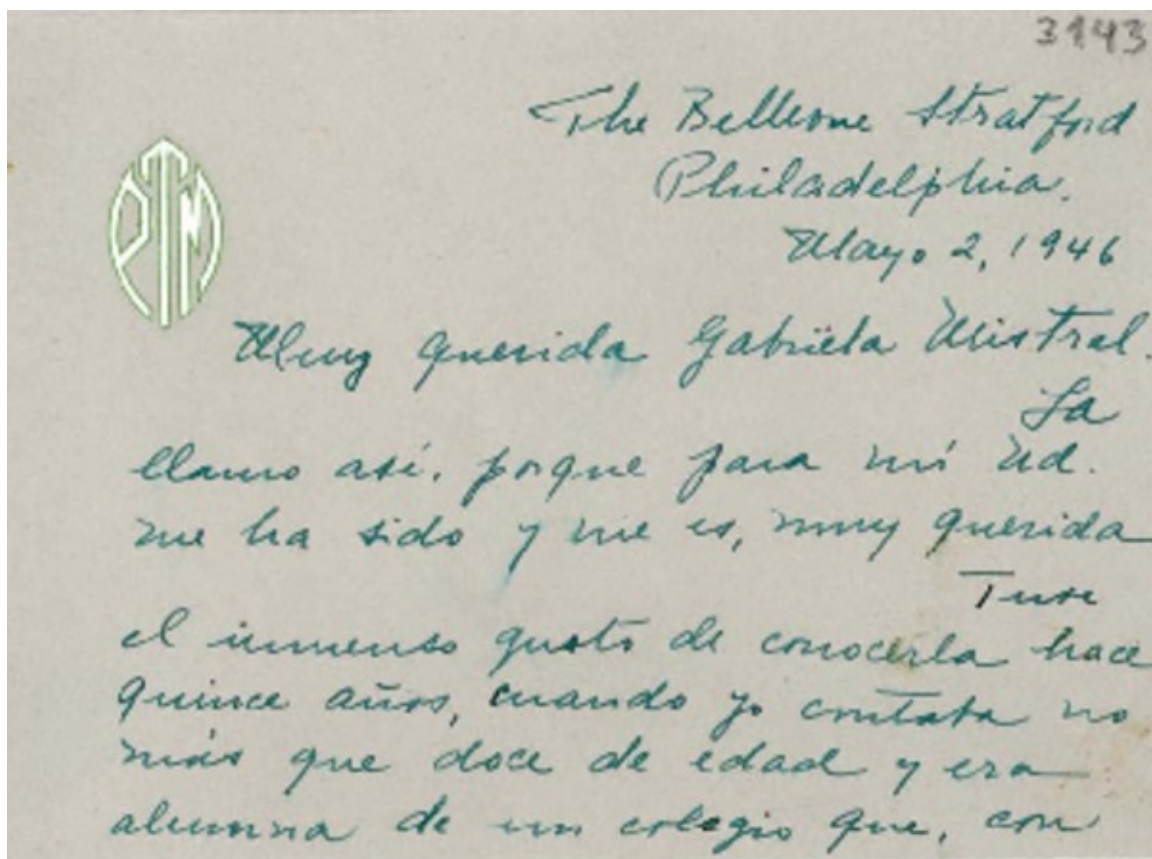 3143
The Bellevue Stratford
Philadelphia.
Mayo 2, 1946
PTM
Muy querida Gabriela Mistral.
La
llamo así, porque para mí Ud.
me ha sido y me es, muy querida
Tuve
el inmenso gusto de conocerla hace
quince años, cuando yo contaba no
más que doce de edad y era
alumna de un colegio que, con